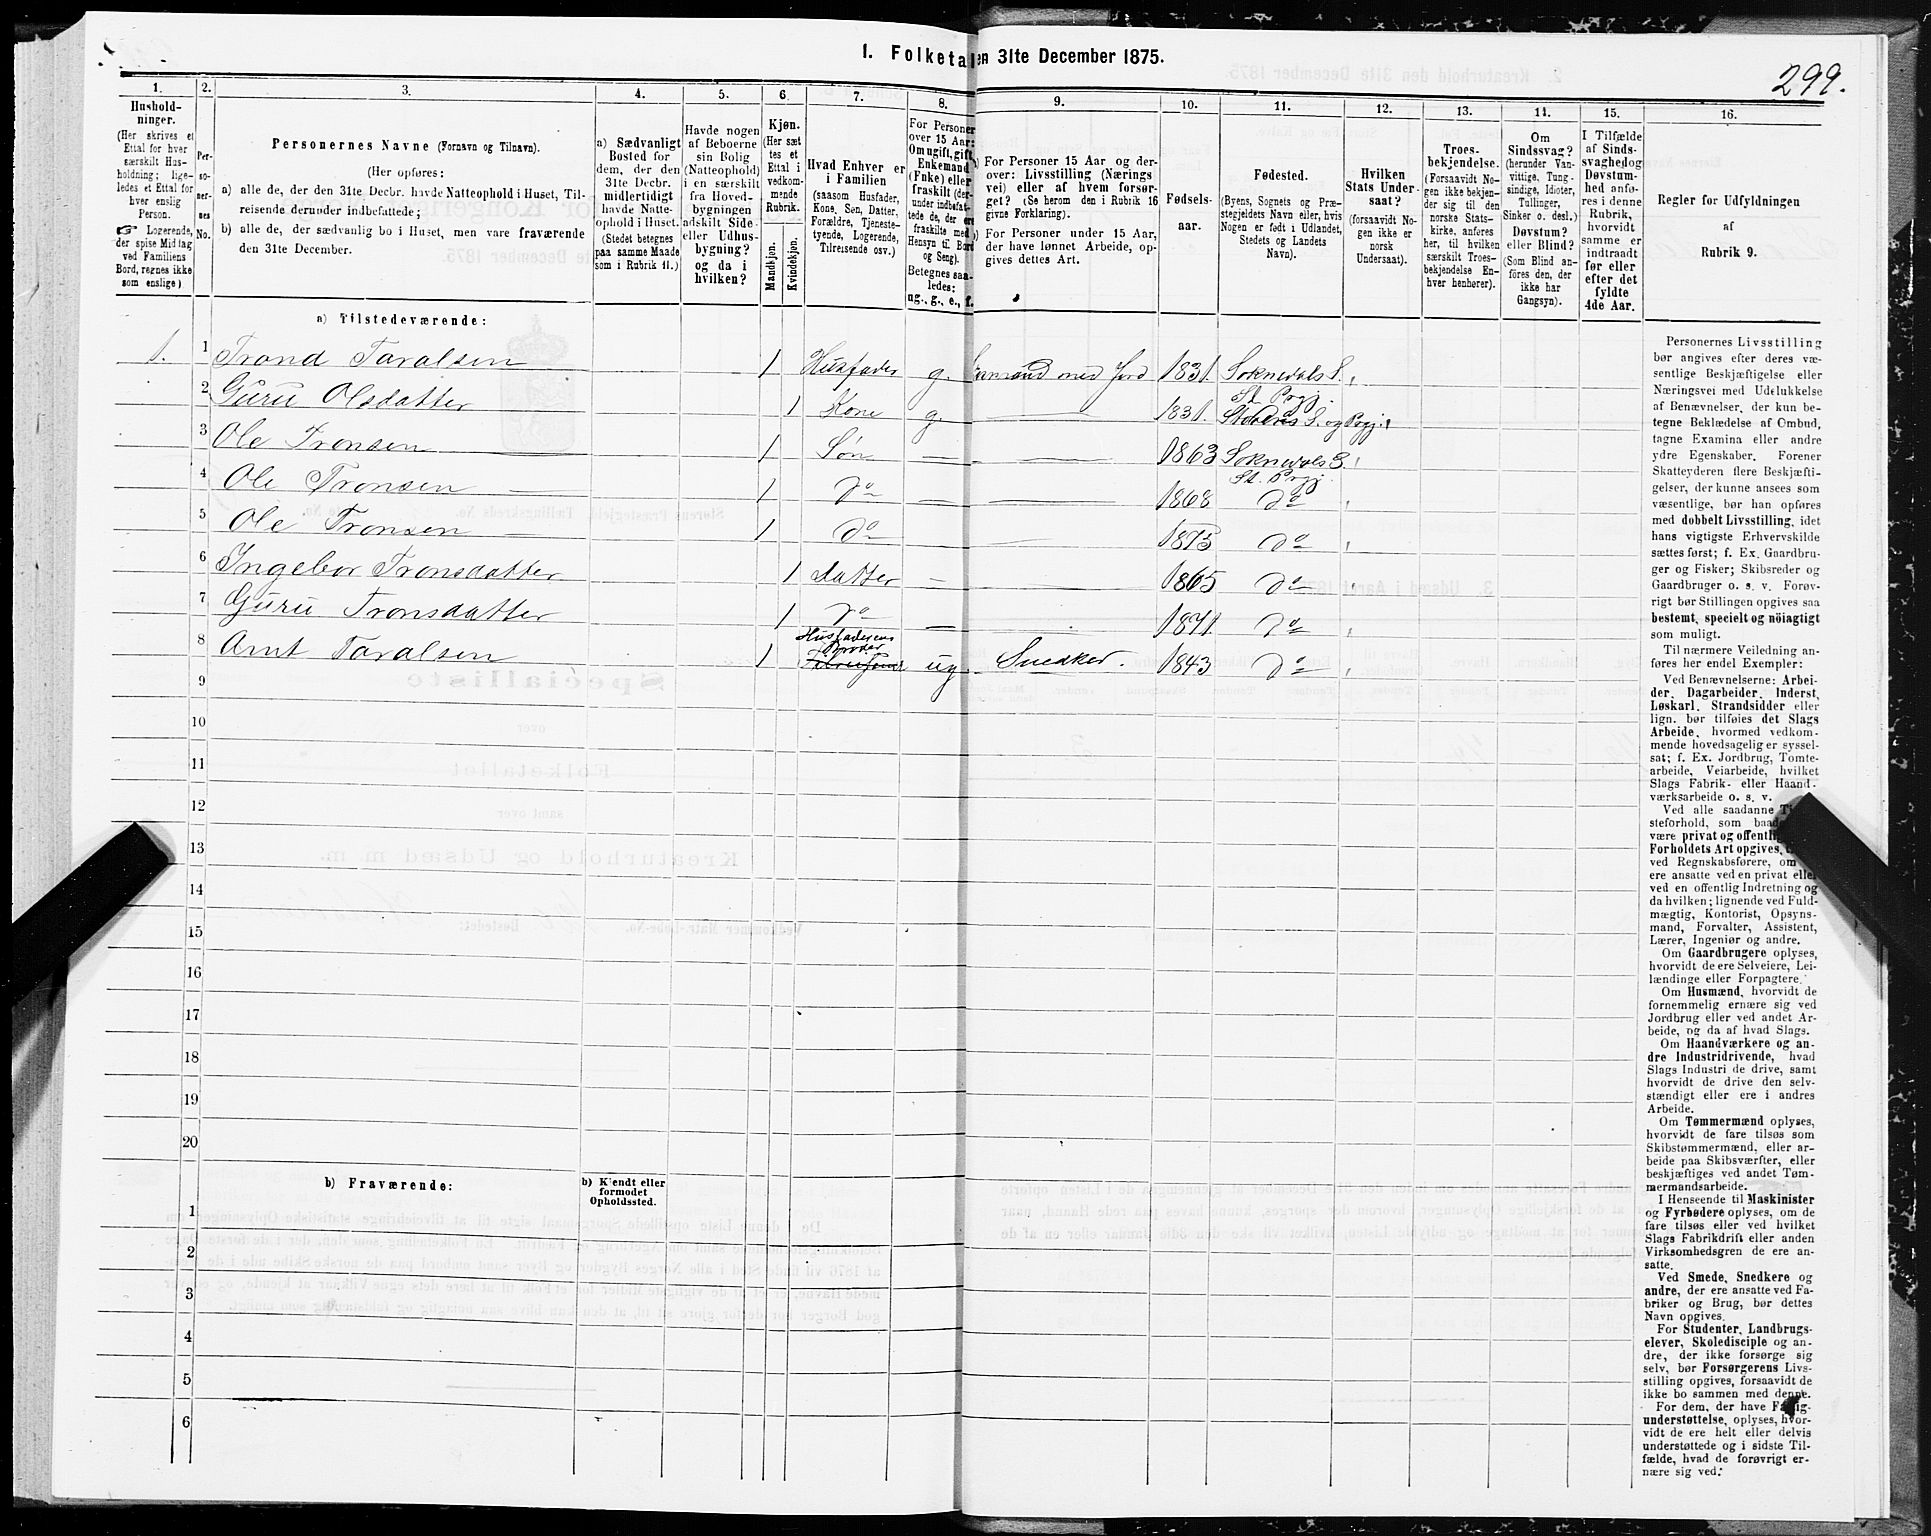 I. Folketal den 31te December 1875.
299.
1. 2. 3. 4. 5. 6. 7. 8. 9. 10. 11. 12. 13. 14. 15. 16.
Hushold-
ninger.
(Her skrives et
Ettal for hver
særskilt Hus-
holdning; lige-
ledes et Ettal for
hver enslig
Person.
Logerende,
der spise Middag
ved Familiens
Bord, regnes ikke
som enslige)
Per-
so-
ner-
nes
No.
Personernes Navne (Fornavn og Tilnavn).
(Her opføres:
a) alle de, der den 31te Decbr. havde Natteophold i Huset, Til-
reisende derunder indbefattede;
b) alle de, der sædvanlig bo i Huset, men vare fraværende
den 31te December.
a) Sædvanligt
Bosted for
dem, der den
31te Decbr.
midlertidigt
havde Natte-
ophold i Huset.
(Stedet betegnes
paa samme Maade
som i Rubrik 11.)
Havde nogen
af Beboerne
sin Bolig
(Natteophold)
i en særskilt
fra Hoved-
bygningen
adskilt Side-
eller Udhus-
bygning?
og da i
hvilken?
Kjøn.
(Her sæt-
tes et
Ettal i
vedkom-
mende
Rubrik.
Mandkjøn.
Kvindekjøn.
Hvad Enhver er
i Familien
(saasom Husfader,
Kone, Søn, Datter,
Forældre, Tjeneste-
tyende, Logerende,
Tilreisende osv.)
For Personer
over 15 Aar:
Om ugift, gift,
Enkemand
(Enke) eller
fraskilt (der-
under indbefat-
tede de, der ere
fraskilte med
Hensyn til Bord
og Seng).
Betegnes saa-
ledes:
ug., g., e., f.
a) For Personer 15 Aar og der-
over: Livsstilling (Nærings-
vei) eller af hvem forsør-
get? (Se herom den i Rubrik 16
givne Forklaring).
b) For Personer under 15 Aar,
der have lønnet Arbeide, op-
gives dettes Art.
Fødsels-
aar.
Fødested.
(Byens, Sognets og Præ-
stegjeldets Navn eller, hvis
Nogen er født i Udlandet,
Stedets og Landets
Navn).
Hvilken
Stats Under-
saat?
(forsaavidt No-
gen ikke er
norsk
Undersaat).
Troes-
bekjendelse.
(Forsaavidt No-
gen ikke bekjen-
der sig til den
norske Stats-
kirke, anføres
her, til hvilken
særskilt Troes-
bekjendelse En-
hver henhører).
Om
Sindssvag?
(herunder Van-
vittige, Tung-
sindige, Idioter,
Tullinger,
Sinker o. desl.)
Døvstum?
eller Blind?
(Som Blind an-
føres den, der
ikke har
Gangsyn).
I Tilfælde
af Sinds-
svaghed og
Døvstum-
hed anfø-
res i denne
Rubrik,
hvorvidt
samme er
indtraadt
før eller
efter det
fyldte
4de Aar.
Regler for Udfyldningen
af
Rubrik 9.
a) Tilstedeværende:
1. 1 Trond Taralsen 1 Husfader g. med Jord 1831. Soknedals S.
St. Prgj.
2 Guru Olsdatter 1 Kone g. 1831. Størens S. og Prgj.
3 Ole Tronsen 1 Søn — 1863 Soknedals S.
St. Prgj.
4 Ole Tronsen 1 do — 1868 do
5 Ole Tronsen 1 do 1875 do
6 Ingebor Tronsdatter 1 Datter — 1865 do
7 Guru Tronsdatter 1 do — 1871. do
Husfaderens
Broder
8 Arnt Taralsen 1 ug. Snedker. 1843 do
9
10
11
12
13
14
15
16
17
18
19
20
b) Fraværende:
b) Kjendt eller
formodet
Opholdssted.
1
2
3
4
5
6
Personernes Livsstilling
bør angives efter deres væ-
sentlige Beskjæftigelse eller
Næringsvei med Udelukkelse
af Benævnelser, der kun be-
tegne Beklædelse af Ombud,
tagne Examina eller andre
ydre Egenskaber. Forener
Skatteyderen flere Beskjæfti-
gelser, der kunne ansees som
væsentlige, bør han opføres
med dobbelt Livsstilling, idet
hans vigtigste Erhvervskilde
sættes først; f. Ex. Gaardbru-
ger og Fisker; Skibsreder og
Gaardbruger o. s. v. Forøv-
rigt bør Stillingen opgives saa
bestemt, specielt og nöiagtigt
som muligt.
Til nærmere Veiledning an-
føres her endel Exempler:
Ved Benævnelserne: Arbei-
der, Dagarbeider, Inderst,
Løskarl, Strandsidder eller
lign. bør tilføies det Slags
Arbeide, hvormed vedkom-
mende hovedsagelig er syssel-
sat; f. Ex. Jordbrug, Tomte-
arbeide, Veiarbeide, hvilket
Slags Fabrik- eller Haand-
værksarbeide o. s. v.
Ved alle saadanne
steforhold, som baade
være privat og offentlig
Forholdets Art opgives,
ved Regnskabsførere, om
ere ansatte ved en privat eller
ved en offentlig Indretning og
da hvilken; lignende ved Fuld-
mægtig, Kontorist, Opsyns-
mand, Forvalter, Assistent,
Lærer, Ingeniør og andre.
Om Gaardbrugere oplyses,
hvorvidt de ere Selveiere, Lei-
lændinge eller Forpagtere.
Om Husmænd, hvorvidt de
fornemmelig ernære sig ved
Jordbrug eller ved andet Ar-
beide, og da af hvad Slags.
Om Haandværkere og an-
dre Industridrivende, hvad
Slags Industri de drive, samt
hvorvidt de drive den selv-
stændigt eller ere i andres
Arbeide.
Om Tømmermænd oplyses,
hvorvidt de fare tilsøs som
Skibstømmermænd, eller ar-
beide paa Skibsværfter, eller
beskjæftiges ved andet Tøm-
mermandsarbeide.
I Henseende til Maskinister
og Fyrbødere oplyses, om de
fare tilsøs eller ved hvilket
Slags Fabrikdrift eller anden
Virksomhedsgren de ere an-
satte.
Ved Smede, Snedkere og
andre, der ere ansatte ved Fa-
briker og Brug, bør dettes
Navn opgives.
For Studenter, Landbrugs-
elever, Skoledisciple og an-
dre, der ikke forsørge sig
selv, bør Forsørgerens Livs-
stilling opgives, forsaavidt de
ikke bo sammen med denne.
For dem, der have Fattig-
understøttelse, oplyses, hvor-
vidt de ere helt eller delvis
understøttede og i sidste Til-
fælde, hvad de forøvrigt er-
nære sig ved.